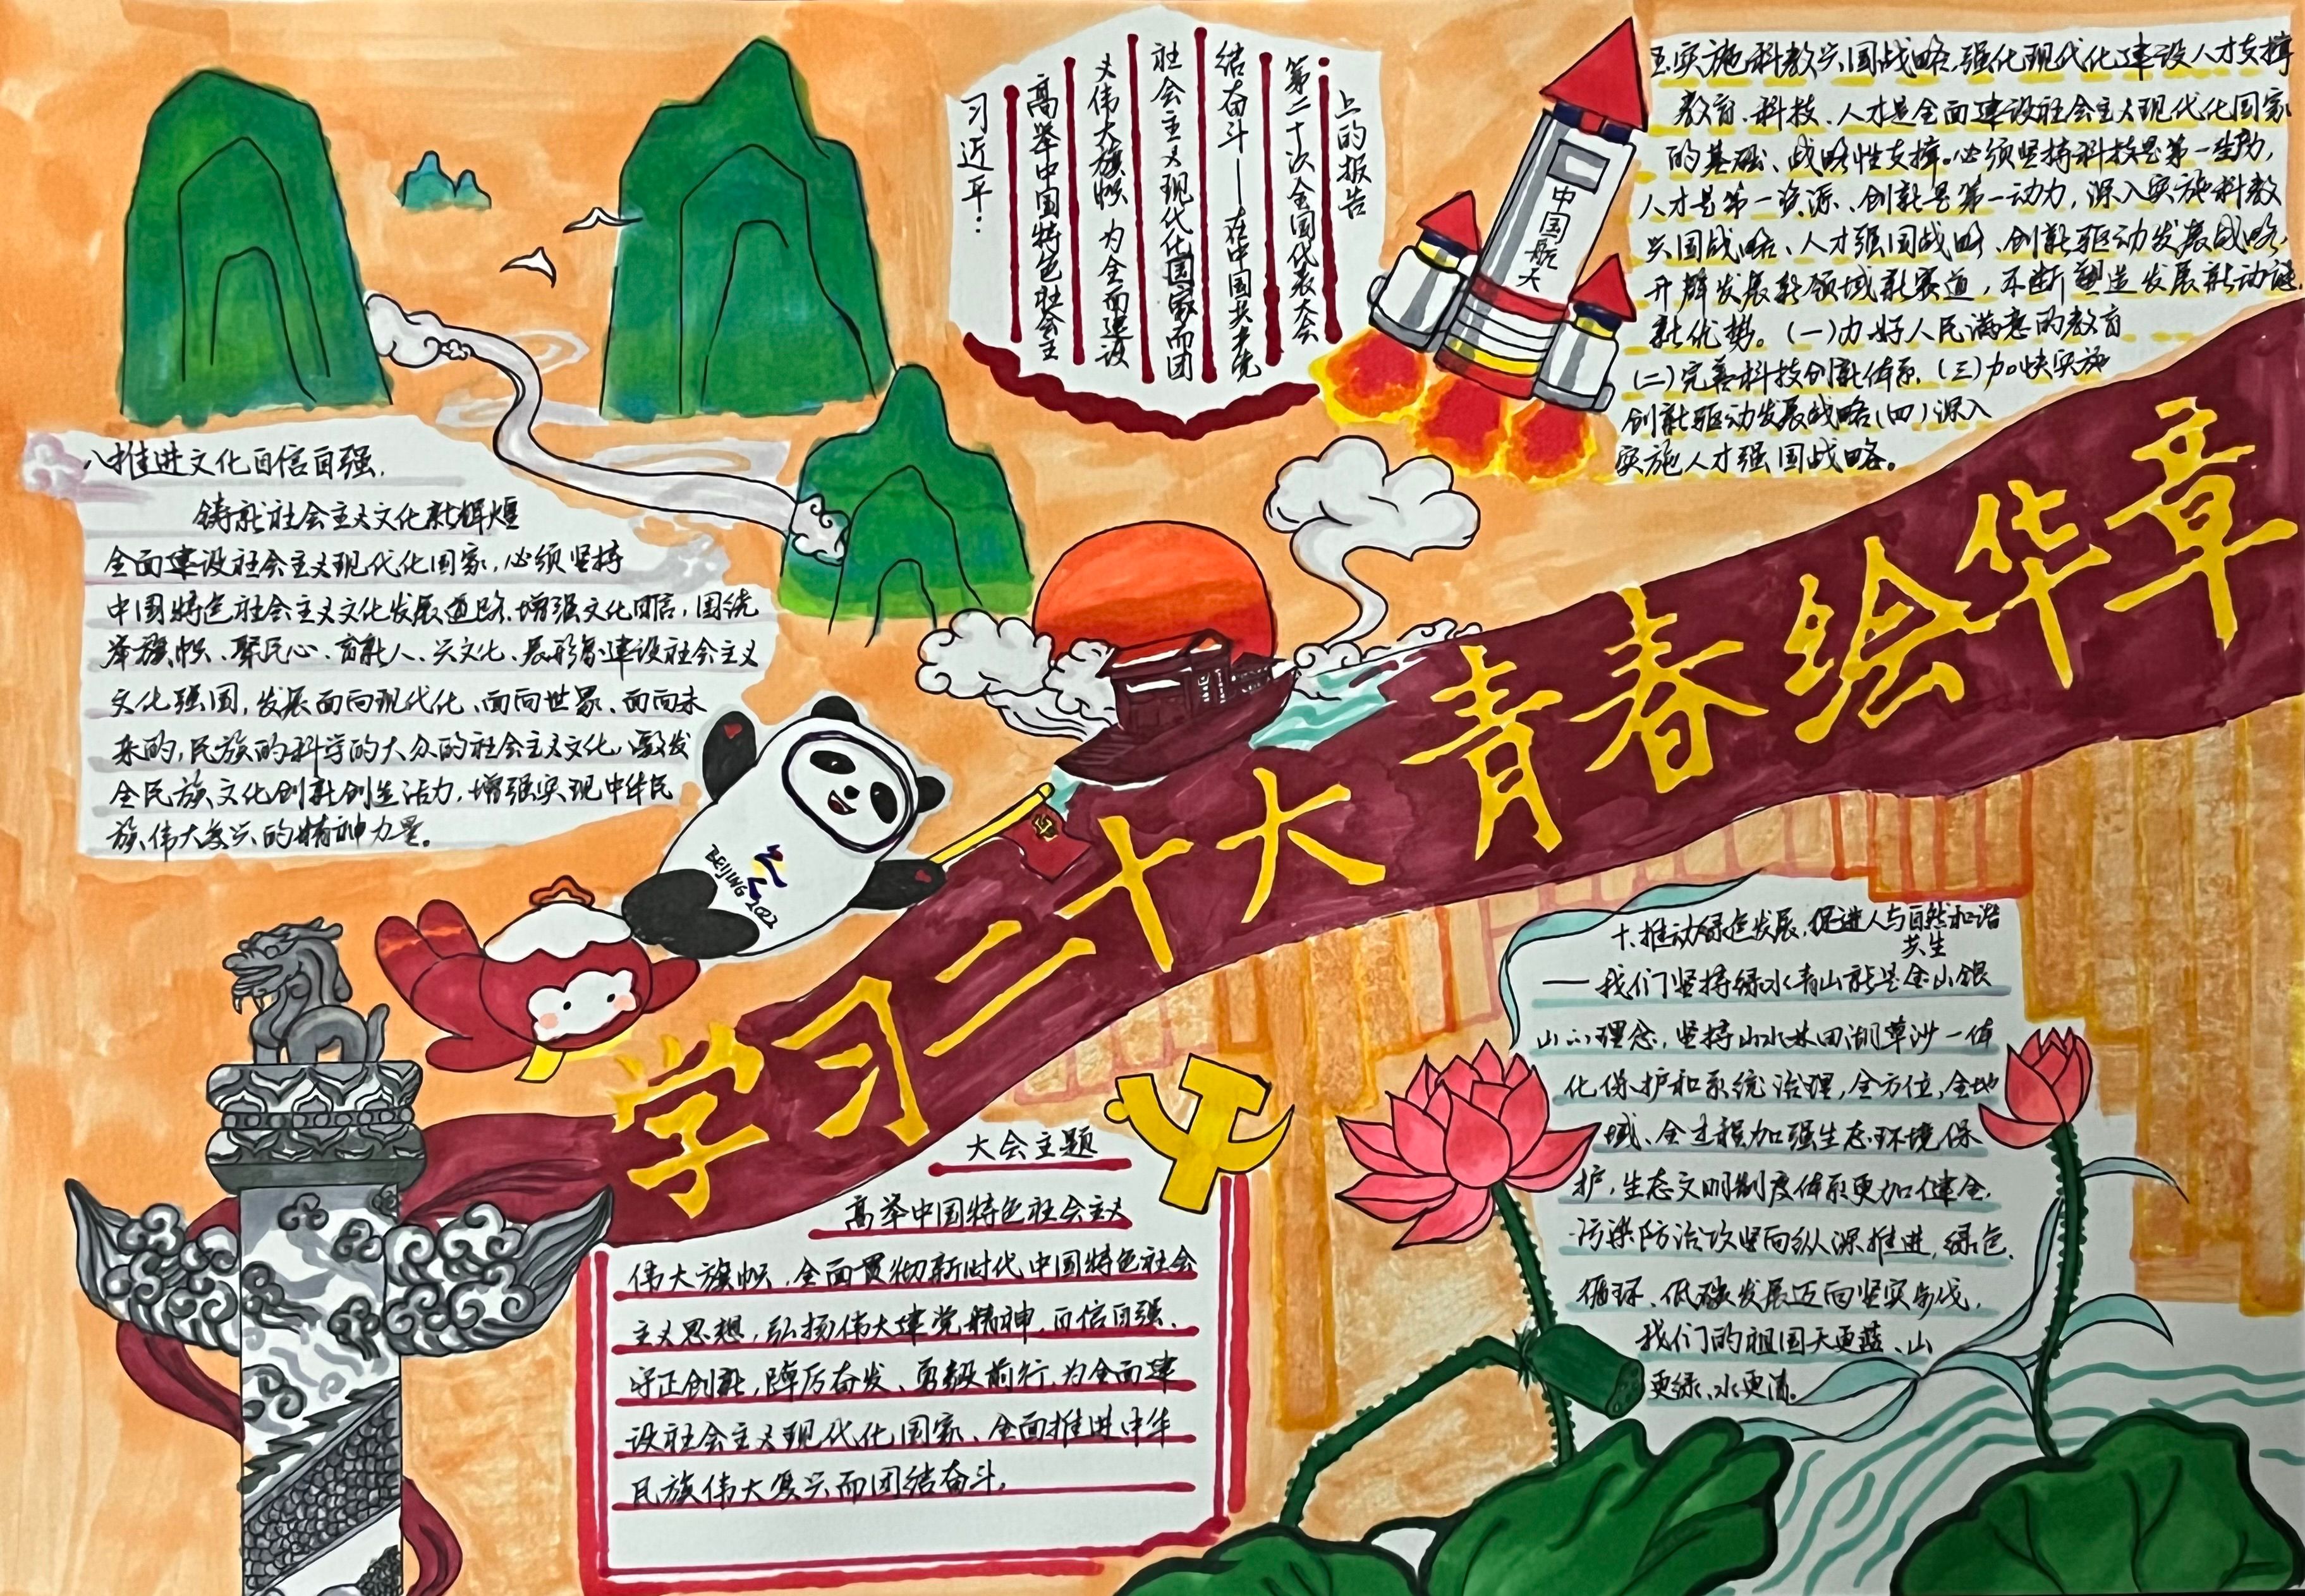 习近平：
高举中国特色社会主
义伟大旗帜 为全面建设
社会主义现代化国家而团
结奋斗——在中国共产党
第二十次全国代表大会
上的报告
中国航天
五实施科教兴国战略,强化现代化建设人才支撑
教育、科技、人才是全面建设社会主义现代化国家
的基础、战略性支撑。必须坚持科技是第一生动,
人才是第一资源、创新是第一动力，深入实施科教
兴国战略、人才强国战略、创新驱动发展战略,
开辟发展新领域新赛道，不断塑造发展新动能
新优势。(一)办好人民满意的教育
(二)完善科技创新体系、(三)加快实施
创新驱动发展战略(四)深入
实施人才强国战略。
八推进文化自信自强，
铸就社会主义文化新辉煌
全面建设社会主义现代化国家，必须坚持
中国特色社会主义文化发展道路、增强文化自信，围绕
举旗帜、聚民心、育新人、兴文化、展形象建设社会主义
文化强国，发展面向现代化、面向世界、面向未
来的，民族的科学的大众的社会主义文化，激发
全民族文化创新创造活力，增强实现中华民
族伟大复兴的精神力量。
BEIJING 2022
学习二十大 青春绘华章
大会主题
高举中国特色社会主义
伟大旗帜，全面贯彻新时代中国特色社会
主义思想，弘扬伟大建党精神，自信自强、
守正创新，踔厉奋发、勇毅前行，为全面建
设社会主义现代化国家、全面推进中华
民族伟大复兴而团结奋斗。
十、推动绿色发展，促进人与自然和谐
共生
——我们坚持绿水青山就是金山银
山的理念，坚持山水林田湖草沙一体
化保护和系统治理，全方位、全地
域、全过程加强生态环境保
护，生态文明制度体系更加健全，
污染防治攻坚向纵深推进，绿色、
循环、低碳发展迈向坚实步伐，
我们的祖国天更蓝、山
更绿、水更清。